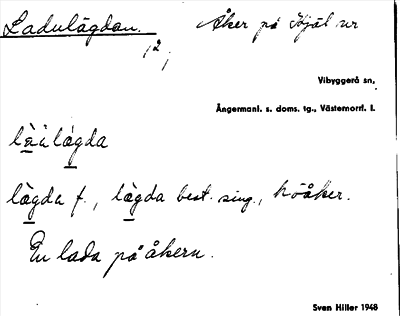 Ladulägdan. Åker på Kjäl nr
1, 2
Vibyggerå sn,
Ångermanl. s. doms. tg., Västernorrl. l.
lä̀ålägda
lägda f., lägda best. sing., höåker.
En lada på åkern.
Sven Hiller 1948